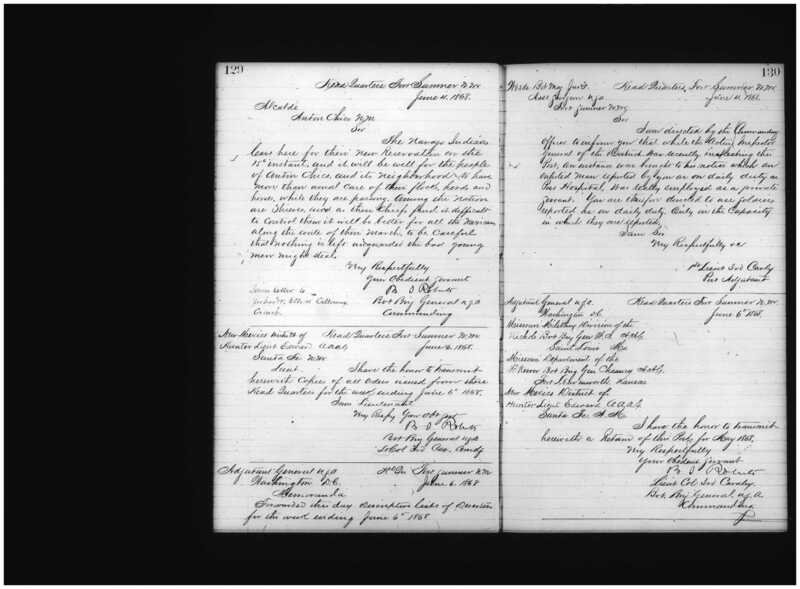 129
Head Quarters Fort Sumner N. M.
June 11. 1868.
Alcalde
Anton Chico N.M.
Sir
The Navajo Indians
leave here for their New Reservation on the
15th instant, and it will be well for the people
of Anton Chico, and its Neighborhood to have
more than usual care of their flocks, herds and
horses, while they are passing. Among the Nation
are thieves, and as their Chiefs find it difficult
to Control them it will be better for all the
along the route of their March, to be Careful
that nothing is left unguarded the bad young
men might steal.
Very Respectfully
Your Obedient Servant
B. S. Roberts
Same letter to
Bvt Brig General U.S.A.
Commanding
New Mexico District of
Head Quarters Fort Sumner N. M.
Hunter Lieut Edward A.A.A.G.
June 6. 1868.
Santa Fe N. M.
Lieut.
I have the honor to transmit
herewith Copies of all Orders issued from these
Head Quarters for the week ending June 6th 1868.
I am Lieutenant
Very Respy Your Obt Servt
B. S. Roberts
Bvt Brig General U.S.A.
Lt Col 3rd Cav. Comdg
Adjutant General U.S.A.
Hd Qrs Fort Sumner N. M.
Washington D.C.
June 6. 1868
Memoranda
Forwarded this day Descriptive Lists of Deserters
for the week ending June 6th 1868
130
Head Quarters, Fort Sumner N. M.
June 11. 1868.
Asst Surgeon U.S.A.
Fort Sumner N. M.
Sir
I am directed by the Commanding
Officer to inform you that while the Acting Inspector
General of the District was recently inspecting this
Post, an instance was brought to his notice where an
enlisted man reported by you as on daily duty in
Post Hospital, was totally employed as a private
servant. You are therefore directed to use soldiers
reported as on daily duty Only in the Capacity
in which they are reported.
I am Sir
Very Respectfully &c
1st Lieut 3rd Cavly
Post Adjutant
Adjutant General U.S.A.
Head Quarters Fort Sumner N. M.
Washington D.C.
June 6th 1868.
Missouri Military Division of the
Nichols Bvt Brig Gen W. A. A.A.G.
Saint Louis Mo.
Missouri Department of the
McKeever Bvt Brig Gen Chauncey A.A.G.
Fort Leavenworth Kansas
New Mexico District of
Hunter Lieut Edward A.A.A.G.
Santa Fe N. M.
I have the honor to transmit
herewith a Return of this Post, for May 1868,
Very Respectfully
Your Obedient Servant
B. S. Roberts
Lieut Col 3rd Cavalry.
Bvt. Brig General U.S.A.
Commanding